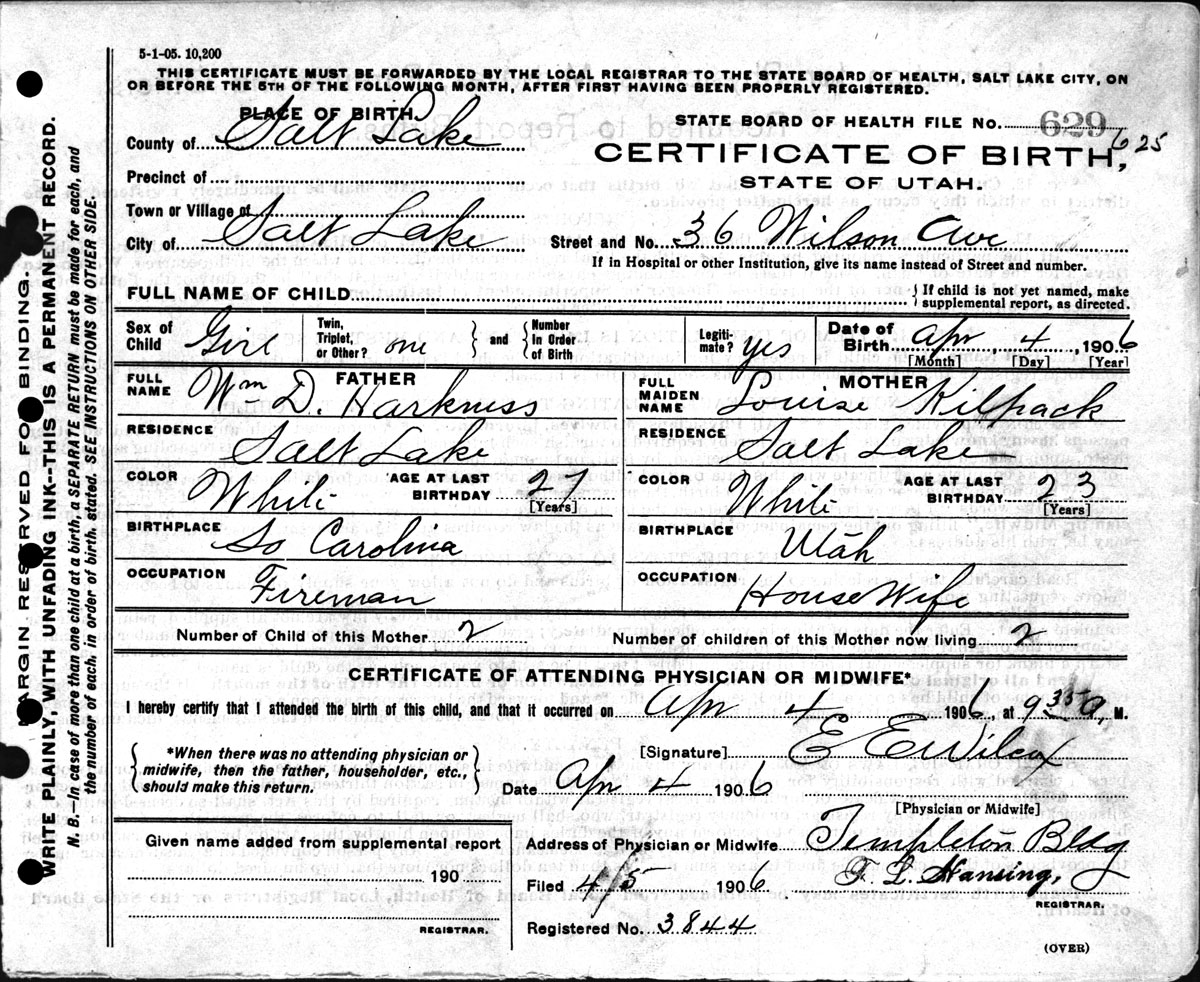 5-1-05. 10,200
THIS CERTIFICATE MUST BE FORWARDED BY THE LOCAL REGISTRAR TO THE STATE BOARD OF HEALTH, SALT LAKE CITY, ON
OR BEFORE THE 5TH OF THE FOLLOWING MONTH, AFTER FIRST HAVING BEEN PROPERLY REGISTERED.
PLACE OF BIRTH.
County of Salt Lake
Precinct of
Town or Village of
City of Salt Lake
STATE BOARD OF HEALTH FILE No. 629 625
CERTIFICATE OF BIRTH,
STATE OF UTAH.
Street and No. 36 Wilson Ave
If in Hospital or other Institution, give its name instead of Street and number.
FULL NAME OF CHILD
{ If child is not yet named, make
supplemental report, as directed.
Sex of Child Girl
Twin, Triplet, or Other? one } and { Number In Order of Birth
Legiti-mate? yes
Date of Birth Apr 4 1906
[Month] [Day] [Year]
FATHER
FULL NAME Wm D. Harkness
RESIDENCE Salt Lake
COLOR White AGE AT LAST BIRTHDAY 27 [Years]
BIRTHPLACE So Carolina
OCCUPATION Fireman
MOTHER
FULL MAIDEN NAME Louise Kilpack
RESIDENCE Salt Lake
COLOR White AGE AT LAST BIRTHDAY 23 [Years]
BIRTHPLACE Utah
OCCUPATION House Wife
Number of Child of this Mother 2 Number of children of this Mother now living 2
CERTIFICATE OF ATTENDING PHYSICIAN OR MIDWIFE*
I hereby certify that I attended the birth of this child, and that it occurred on Apr 4 1906, at 9 35 A, M.
{ *When there was no attending physician or
midwife, then the father, householder, etc.,
should make this return. }
[Signature] E E Wilcox
Date Apr 4 1906
[Physician or Midwife]
Given name added from supplemental report
190
REGISTRAR.
Address of Physician or Midwife Templeton Bldg
Filed 4/5 1906 T. L. Hansing,
REGISTRAR.
Registered No. 3844
(OVER)
MARGIN RESERVED FOR BINDING.
WRITE PLAINLY, WITH UNFADING INK--THIS IS A PERMANENT RECORD.
N. B.—In case of more than one child at a birth, a SEPARATE RETURN must be made for each, and
the number of each, in order of birth, stated. SEE INSTRUCTIONS ON OTHER SIDE.